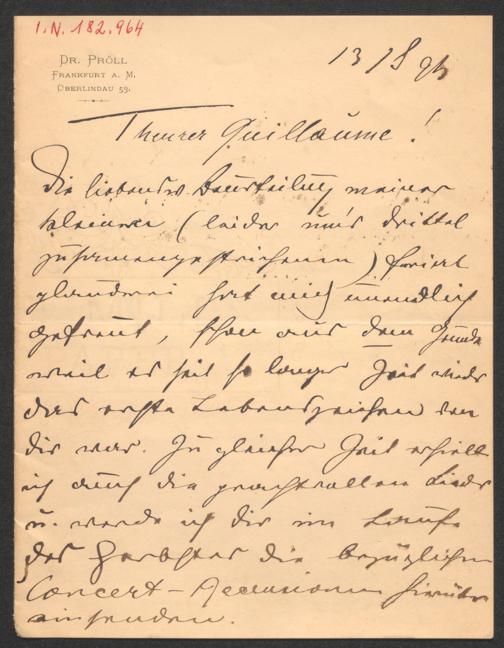 I.N. 182.964
DR. PRÖLL
FRANKFURT A. M.
OBERLINDAU 53.
13/8 96
Theurer Guillaume!
Die liebensw. Beurteilung meiner
kleinen (leider um's drittel
zusammengestrichenen) Feriat
plauderei hat mich unendlich
gefreut, schon aus dem Grunde
weil es seit so langer Zeit wieder
das erste Lebenszeichen von
dir war. Zu gleicher Zeit erhielt
ich auch die prachtvollen Lieder
u. werde ich Dir im Laufe
des Herbstes die bezüglichen
Concert-Recensionen hierüber
einsenden.